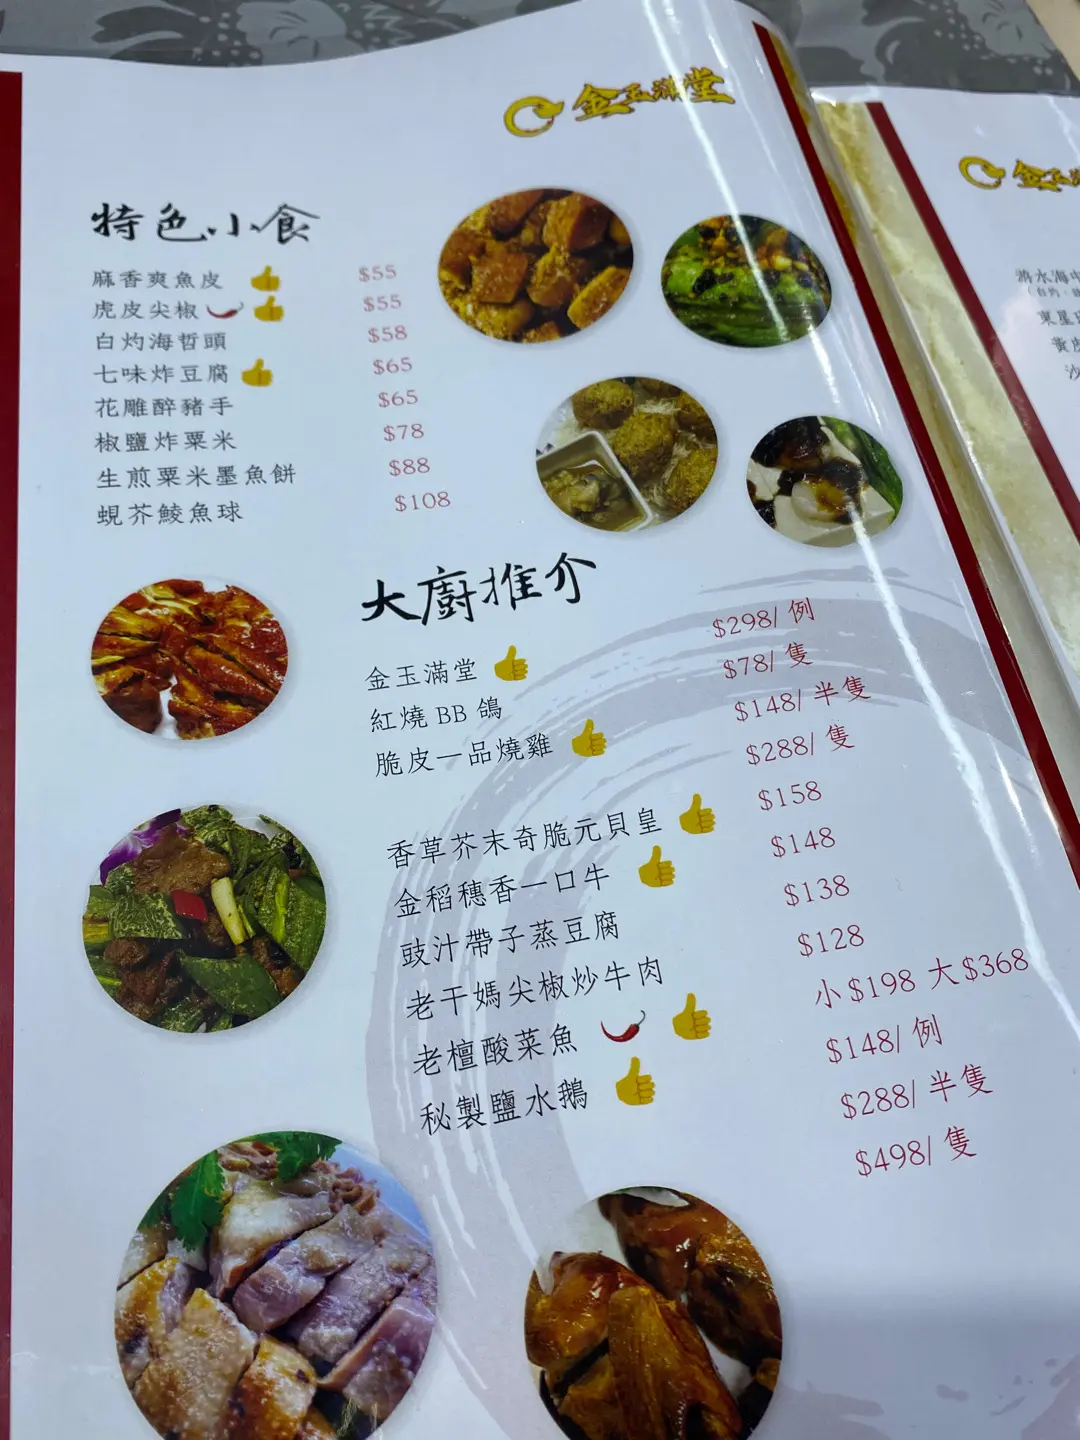 金玉滿堂
特色小食
麻香爽魚皮 $55
虎皮尖椒 $55
白灼海哲頭 $58
七味炸豆腐 $65
花雕醉豬手 $65
椒鹽炸粟米 $78
生煎粟米墨魚餅 $88
蜆芥鯪魚球 $108
大廚推介
金玉滿堂 $298/ 例
紅燒 BB 鴿 $78/ 隻
脆皮一品燒雞 $148/ 半隻
$288/ 隻
香草芥末奇脆元貝皇 $158
金稻穗香一口牛 $148
豉汁帶子蒸豆腐 $138
老干媽尖椒炒牛肉 $128
老檀酸菜魚 小 $198 大 $368
秘製鹽水鵝 $148/ 例
$288/ 半隻
$498/ 隻
金玉
游水海中
東星
黃
沙